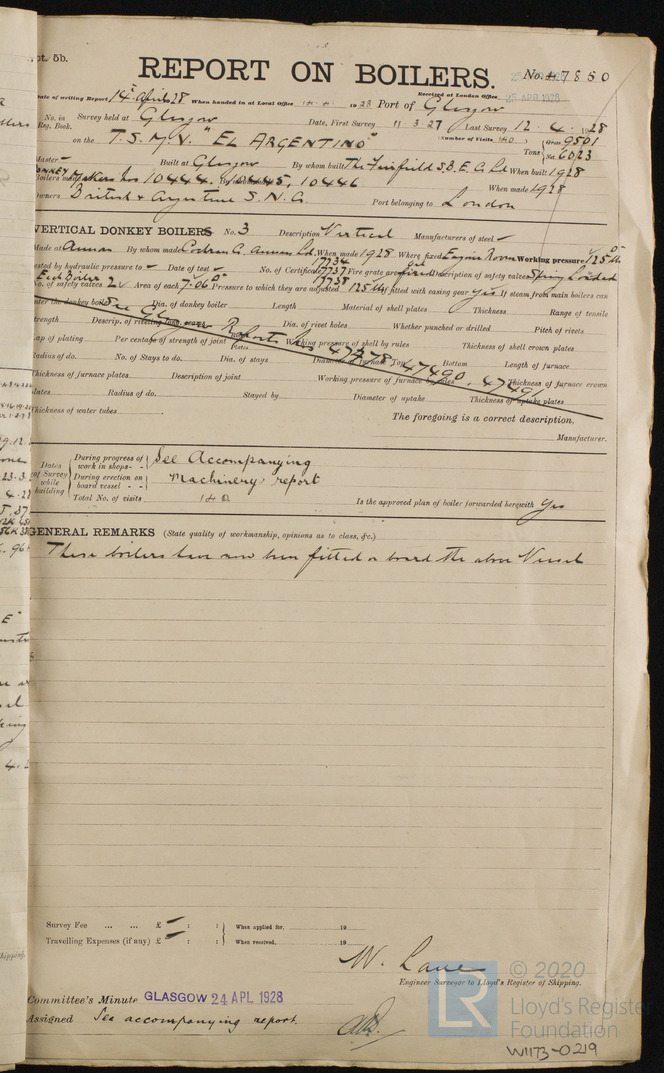 pt. 5b.
REPORT ON BOILERS.
No. 47850
25 APR 1928
Date of writing Report 14th April 28 When handed in at Local Office 14.4.1928 Port of Glasgow
Received at London Office 25 APR 1928
No. in Reg. Book. Survey held at Glasgow Date, First Survey 11.3.27 Last Survey 12.4.1928
(Number of Visits 140)
on the T.S.M.V. "EL ARGENTINO" Tons { Gross 9501 Net 6023
Master – Built at Glasgow By whom built The Fairfield S.B. & E. Co Ld When built 1928
DONKEY Boilers made Makers Nos 10444, 10445, 10446 When made 1928
Owners British & Argentine S.N.Co Port belonging to London
VERTICAL DONKEY BOILERS No. 3 Description Vertical Manufacturers of steel –
Made at Annan By whom made Cochran & Co. Annan Ld. When made 1928 Where fixed Engine Room Working pressure 125 lb
Tested by hydraulic pressure to – Date of test – No. of Certificate 17734 17737 17738 Fire grate area oil fired Description of safety valves Spring Loaded
Each Boiler
No. of safety valves 2 Area of each 7.06 Pressure to which they are adjusted 125 lbs If fitted with easing gear yes If steam from main boilers can
enter the donkey boiler Dia. of donkey boiler Length Material of shell plates Thickness Range of tensile
strength Descrip. of riveting long. seams Dia. of rivet holes Whether punched or drilled Pitch of rivets
See Gls Reports Nos 47378, 47490, 47491
Lap of plating Per centage of strength of joint Rivets Plates Working pressure of shell by rules Thickness of shell crown plates
Radius of do. No. of Stays to do. Dia. of stays Diameter of furnace Top Bottom Length of furnace
Thickness of furnace plates Description of joint Working pressure of furnace by rules Thickness of furnace crown
plates Radius of do. Stayed by Diameter of uptake Thickness of uptake plates
Thickness of water tubes
The foregoing is a correct description,
Manufacturer.
Dates of Survey while building { During progress of work in shops - - See Accompanying
During erection on board vessel - - Machinery report
Total No. of visits 140 Is the approved plan of boiler forwarded herewith yes
GENERAL REMARKS (State quality of workmanship, opinions as to class, &c.)
These boilers have now been fitted on board the above Vessel
Survey Fee ... ... £ – : : } When applied for, 19
Travelling Expenses (if any) £ – : : } When received, 19
W. Lane
Engineer Surveyor to Lloyd's Register of Shipping.
Committee's Minute GLASGOW 24 APL 1928
Assigned See accompanying report.
© 2020
Lloyd's Register
Foundation
W1173-0219